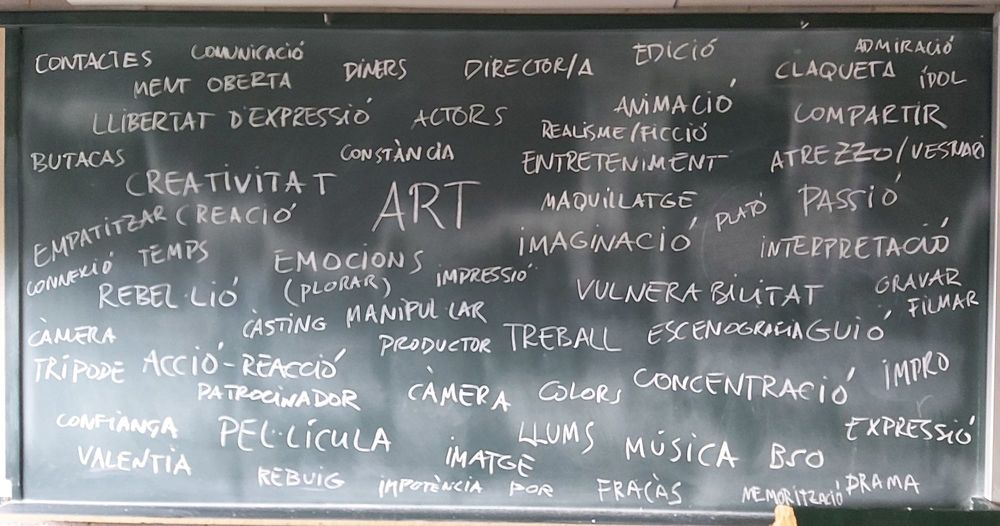 CONTACTES COMUNICACIÓ DINERS DIRECTOR/A EDICIÓ ADMIRACIÓ
MENT OBERTA CLAQUETA ÍDOL
LLIBERTAT D'EXPRESSIÓ ACTORS ANIMACIÓ COMPARTIR
REALISME/FICCIÓ
BUTACAS CONSTÀNCIA ENTRETENIMENT ATREZZO/VESTUARI
CREATIVITAT ART MAQUILLATGE PLATÓ PASSIÓ
EMPATITZAR CREACIÓ IMAGINACIÓ INTERPRETACIÓ
CONNEXIÓ TEMPS EMOCIONS IMPRESSIÓ GRAVAR
REBEL·LIÓ (PLORAR) VULNERABILITAT FILMAR
CÀMERA CÀSTING MANIPUL·LAR PRODUCTOR TREBALL ESCENOGRAFIA GUIÓ
TRÍPODE ACCIÓ-REACCIÓ IMPRO
PATROCINADOR CÀMERA COLORS CONCENTRACIÓ
CONFIANÇA PEL·LÍCULA LLUMS MÚSICA BSO EXPRESSIÓ
VALENTIA IMATGE
REBUIG IMPOTÈNCIA POR FRACÀS MEMORITZACIÓ DRAMA